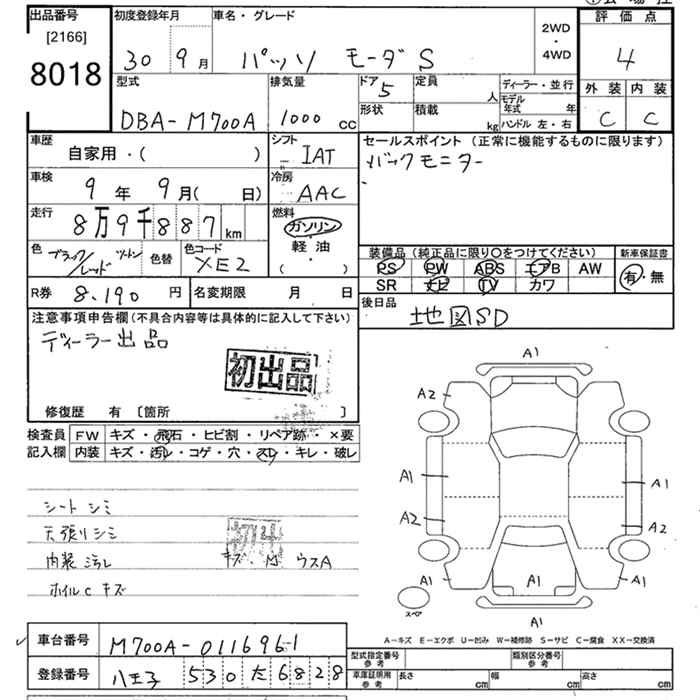 出品番号 初度登録年月 車名・グレード 評価点
[2166] 30 9月 パッソ モーダS 2WD・4WD 4
8018 型式 排気量 ドア 5 定員 人 ディーラー・並行 外装 内装
DBA-M700A 1000cc 形状 積載 kg モデル年式 年 ハンドル 左・右 C C
車歴 自家用・( ) シフト IAT セールスポイント (正常に機能するものに限ります)
車検 9年 9月( 日) 冷房 AAC バックモニター
走行 8万9千887km 燃料 ガソリン・軽油・( )
色 ブラック/レッド ツートン 色替 色コード XE2 装備品 (純正品に限り〇をつけてください) 新車保証書
PS PW ABS エアB AW 有・無
R券 8,190円 名変期限 月 日 SR ナビ TV カワ
注意事項申告欄(不具合内容等は具体的に記入して下さい) 後日品 地図SD
ディーラー出品
初出品
修復歴 有 [箇所 ]
検査員 FW キズ・飛石・ヒビ割・リペア跡・×要
記入欄 内装 キズ・汚レ・コゲ・穴・スレ・キレ・破レ
シートシミ
天張リシミ 初
内装汚レ
ホイルCキズ
A1
A2
A1 A1
A2 A2
A1 A1 A1
スペア A1
A-キズ E-エクボ U-凹み W-補修跡 S-サビ C-腐食 XX-交換済
車台番号 M700A-0116961
登録番号 八王子 530 た 6828
型式指定番号 参考 類別区分番号 参考
車庫証明用 参考 長さ cm 幅 cm 高さ cm